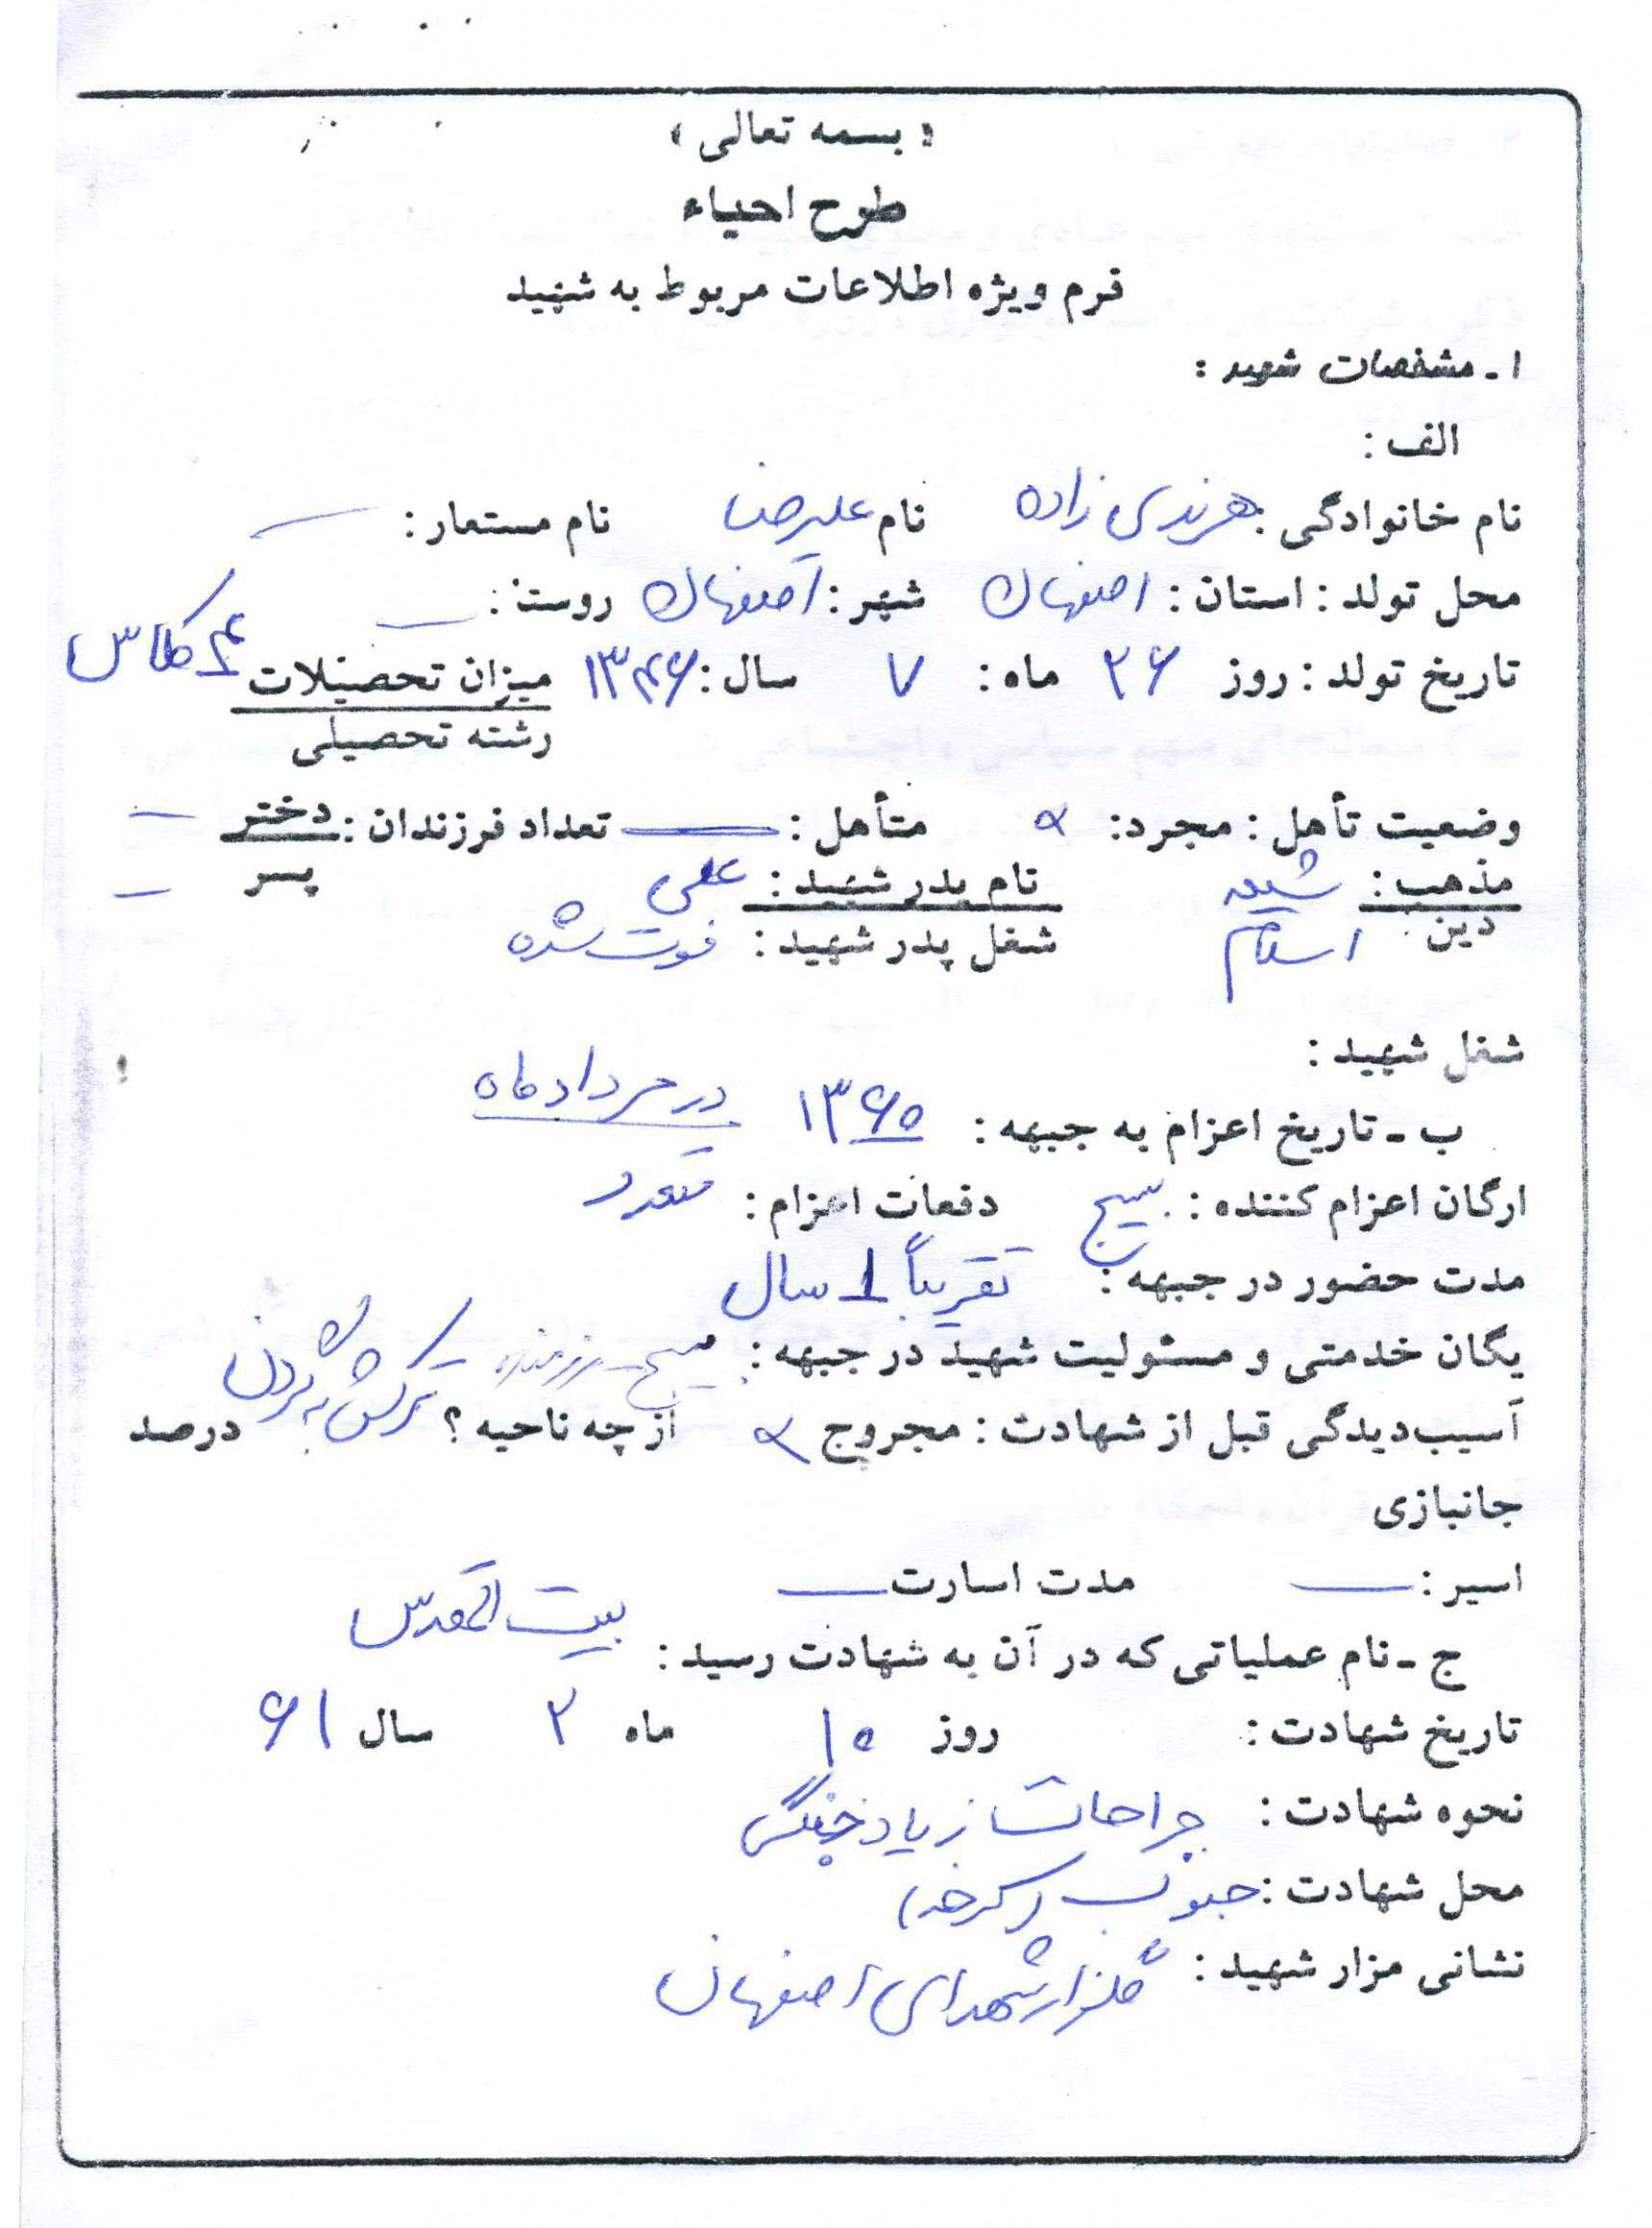 « بسمه تعالی »
طرح احیاء
فرم ویژه اطلاعات مربوط به شهید
۱ ـ مشخصات شهید :
الف :
نام خانوادگی : هرندی زاده نام علیرضا نام مستعار : —
محل تولد : استان : اصفهان شهر : اصفهان روستا : —
تاریخ تولد : روز ۲۶ ماه : ۷ سال : ۱۳۴۶ میزان تحصیلات کلاس
رشته تحصیلی
وضعیت تأهل : مجرد : متأهل : — تعداد فرزندان : دختر —
پسر —
مذهب : شیعه نام پدر شهید : علی
دین : اسلام شغل پدر شهید : فوت شده
شغل شهید :
ب ـ تاریخ اعزام به جبهه : ۱۳۶۰ در مرداد ماه
ارگان اعزام کننده : بسیج دفعات اعزام : متعدد
مدت حضور در جبهه : تقریباً ۱ سال
یگان خدمتی و مسئولیت شهید در جبهه : بسیج - رزمنده
آسیب‌دیدگی قبل از شهادت : مجروح از چه ناحیه ؟ ترکش به گردن درصد
جانبازی
اسیر : — مدت اسارت —
ج ـ نام عملیاتی که در آن به شهادت رسید : بیت المقدس
تاریخ شهادت : روز ۱۰ ماه ۲ سال ۶۱
نحوه شهادت : جراحات زیاد جنگی
محل شهادت : جنوب (کرخه)
نشانی مزار شهید : گلزار شهدای اصفهان